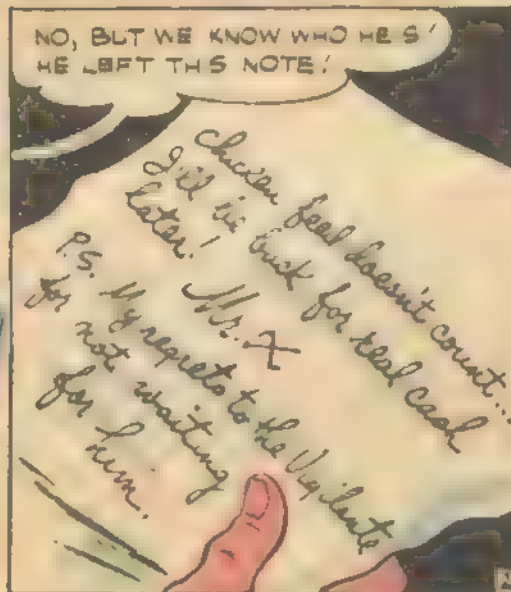 NO, BUT WE KNOW WHO HE S!
HE LEFT TH S NOTE!
Chicken feed doesn't count...
I'll be back for real cash
later!
Mr. X
P.S. My regrets to the Vigilante
for not waiting
for him.